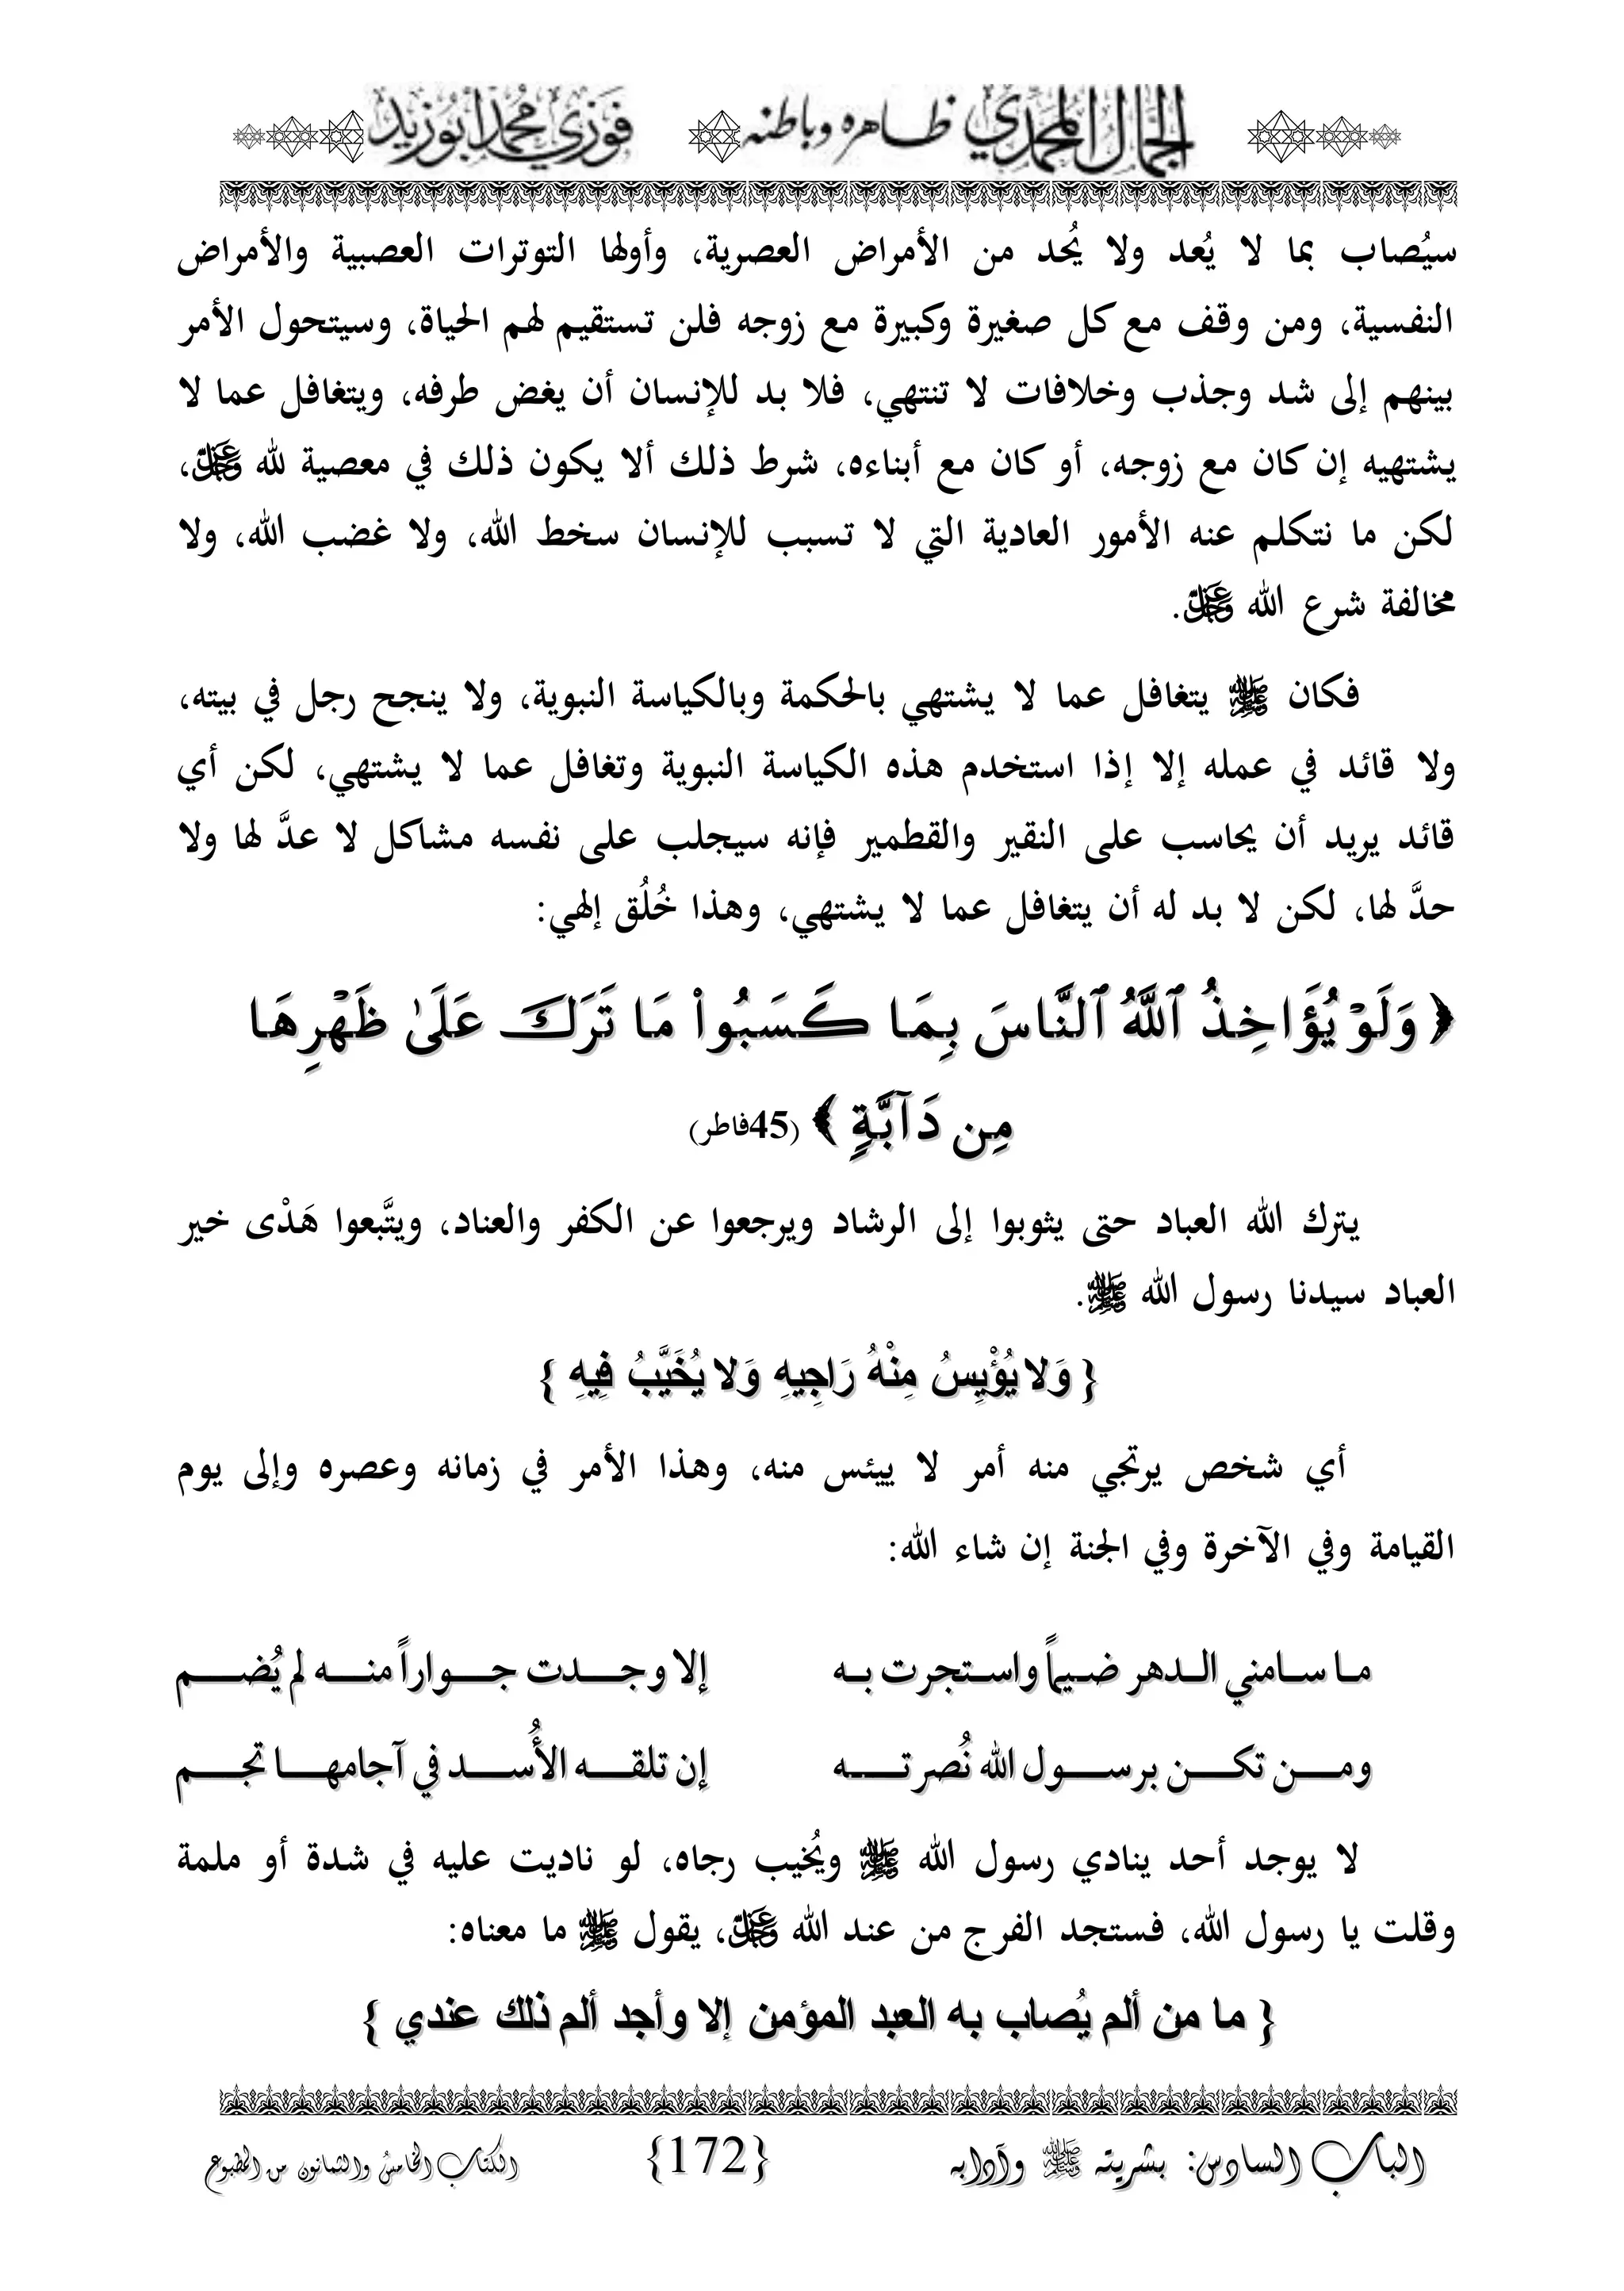 الجمال المحمدي ظاهره وباطنه فوزي محمد أبوزيد
سيُصاب بما لا يُعد ولا يُحد من الأمراض العصرية، وأولها التوترات العصبية والأمراض
النفسية، ومن وقف مع كل صغيرة وكبيرة مع زوجه فلن تستقيم لهم الحياة، وسيتحول الأمر
بينهم إلى شد وجذب وخلافات لا تنتهي، فلا بد للإنسان أن يغض طرفه، ويتغافل عما لا
يشتهيه إن كان مع زوجه، أو كان مع أبناءه، شرط ذلك ألا يكون ذلك في معصية لله عز وجل،
لكن ما نتكلم عنه الأمور العادية التي لا تسبب للإنسان سخط الله، ولا غضب الله، ولا
مخالفة شرع الله عز وجل.
فكان ﷺ يتغافل عما لا يشتهي بالحكمة وبالكياسة النبوية، ولا ينجح رجل في بيته،
ولا قائد في عمله إلا إذا استخدم هذه الكياسة النبوية وتغافل عما لا يشتهي، لكن أي
قائد يريد أن يحاسب على النقير والقطمير فإنه سيجلب على نفسه مشاكل لا عدَّ لها ولا
حدَّ لها، لكن لا بد له أن يتغافل عما لا يشتهي، وهذا خُلُق إلهي:
﴿ وَلَوْ يُؤَاخِذُ ٱللَّهُ ٱلنَّاسَ بِمَا كَسَبُواْ مَا تَرَكَ عَلَىٰ ظَهْرِهَا
مِن دَآبَّةٍ ﴾ (45فاطر)
يترك الله العباد حتى يثوبوا إلى الرشاد ويرجعوا عن الكفر والعناد، ويتَّبعوا هَدْى خير
العباد سيدنا رسول الله ﷺ.
{ وَلا يُؤْيِسُ مِنْهُ رَاجِيهِ وَلا يُخَيَّبُ فِيهِ }
أي شخص يرتجي منه أمر لا ييئس منه، وهذا الأمر في زمانه وعصره وإلى يوم
القيامة وفي الآخرة وفي الجنة إن شاء الله:
ما سامني الدهر ضيماً واستجرت به إلا وجدت جواراً منه لم يُضم
ومن تكن برسول الله نُصرته إن تلقه الأُسد في آجامها تجم
لا يوجد أحد ينادي رسول الله ﷺ ويُخيب رجاه، لو ناديت عليه في شدة أو ملمة
وقلت يا رسول الله، فستجد الفرج من عند الله عز وجل، يقول ﷺ ما معناه:
{ ما من ألم يُصاب به العبد المؤمن إلا وأجد ألم ذلك عندي }
الباب السادس: بشريته ﷺ وآدابه {172} الكتاب الخامس والثمانون من المطبوع